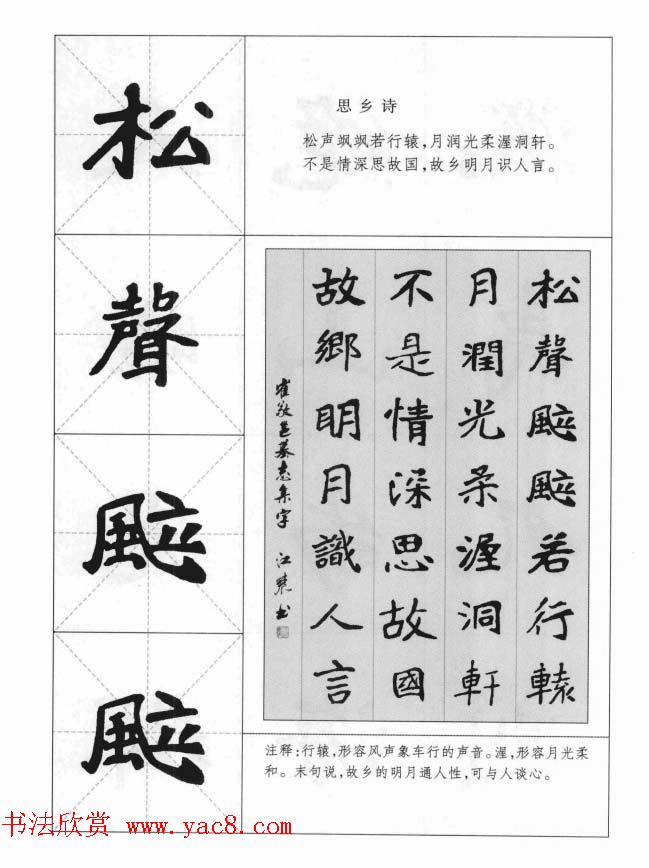 松
聲
颯
颯
思乡诗
松声飒飒若行辕,月润光柔渥洞轩。
不是情深思故国,故乡明月识人言。
松聲颯颯若行轅
月潤光柔渥洞軒
不是情深思故國
故鄉明月識人言
崔敬邕墓志集字 江東书
注释:行辕,形容风声象车行的声音。渥,形容月光柔
和。末句说,故乡的明月通人性,可与人谈心。
书法欣赏 www.yac8.com